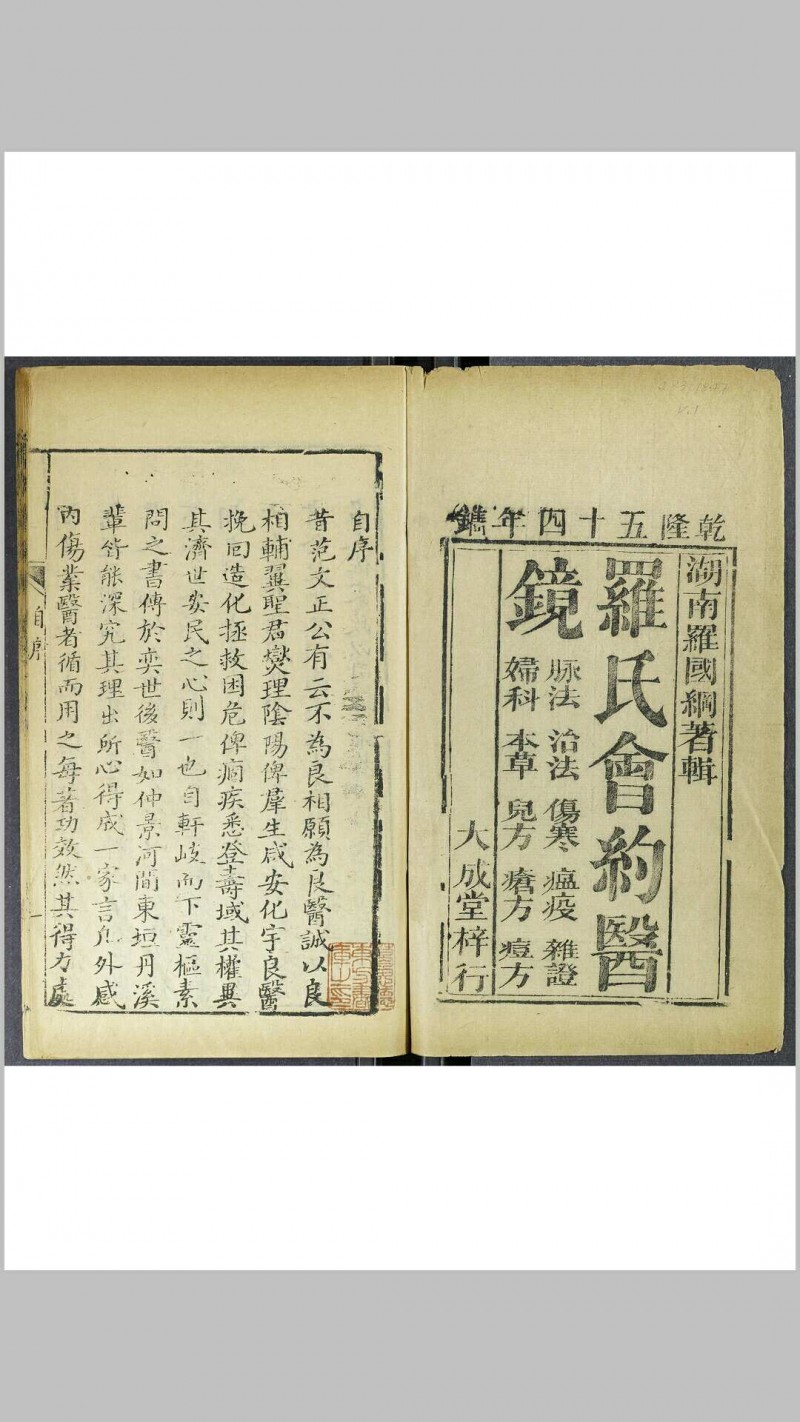 乾隆五十四年鐫
湖南羅國綱著輯
羅氏會約醫
鏡
脉法 治法 傷寒 瘟疫 雜證
婦科 本草 兒方 瘡方 痘方
大成堂梓行
自序
昔范文正公有云不為良相願為良醫誠以良
相輔翼聖君燮理陰陽俾羣生咸安化宇良醫
挽回造化拯救困危俾痼疾悉登壽域其權異
其濟世安民之心則一也自軒岐而下靈樞素
問之書傳於奕世後醫如仲景河間東垣丹溪
輩皆能深究其理出所心得成一家言凡外感
內傷業醫者循而用之每著功效然其得力處
自序
一